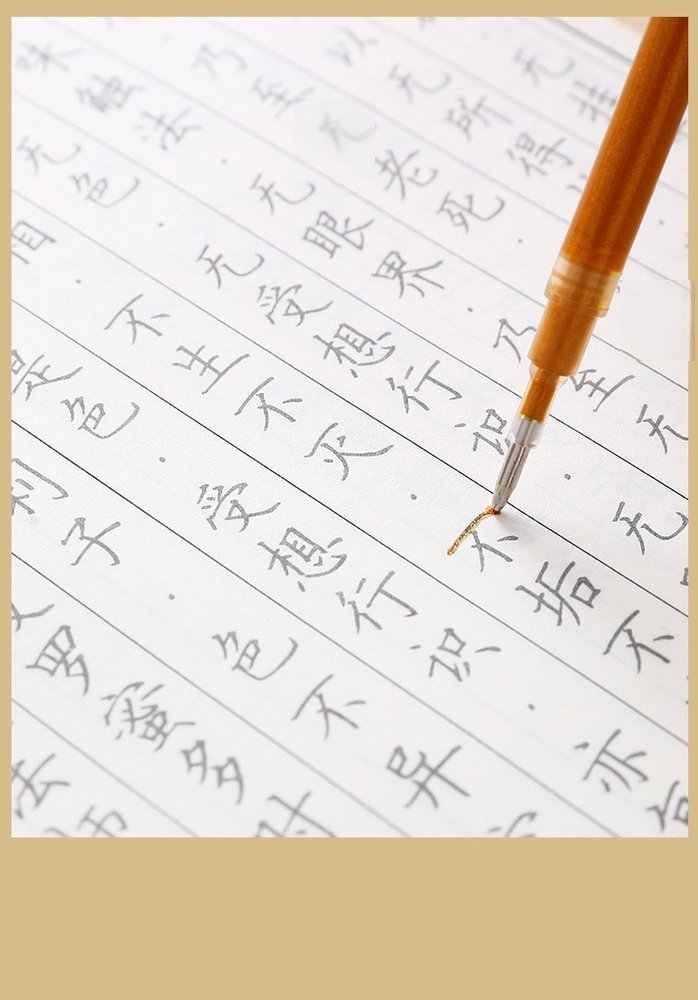 法师
罗蜜多时
利子·色不异
是色·受想行识·亦
相·不生不灭·不垢不
无色·无受想行识·无
味触法·无眼界·乃至无
乃至无老死·
以无所得
无挂